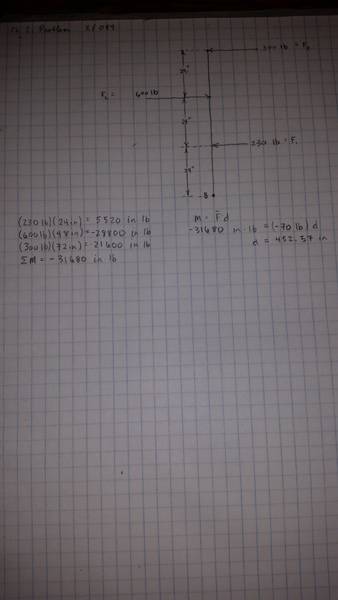 Ch 2: Problem 2/049
300 lb = F₃
24"
F₂ = 600 lb
24"
230 lb = F₁
24"
B
(230 lb)(24 in) = 5520 in lb
(600 lb)(48 in) = -28800 in lb
(300 lb)(72 in) = 21600 in lb
ΣM = -31680 in lb
M = Fd
-31680 in·lb = (-70 lb) d
d = 452.57 in